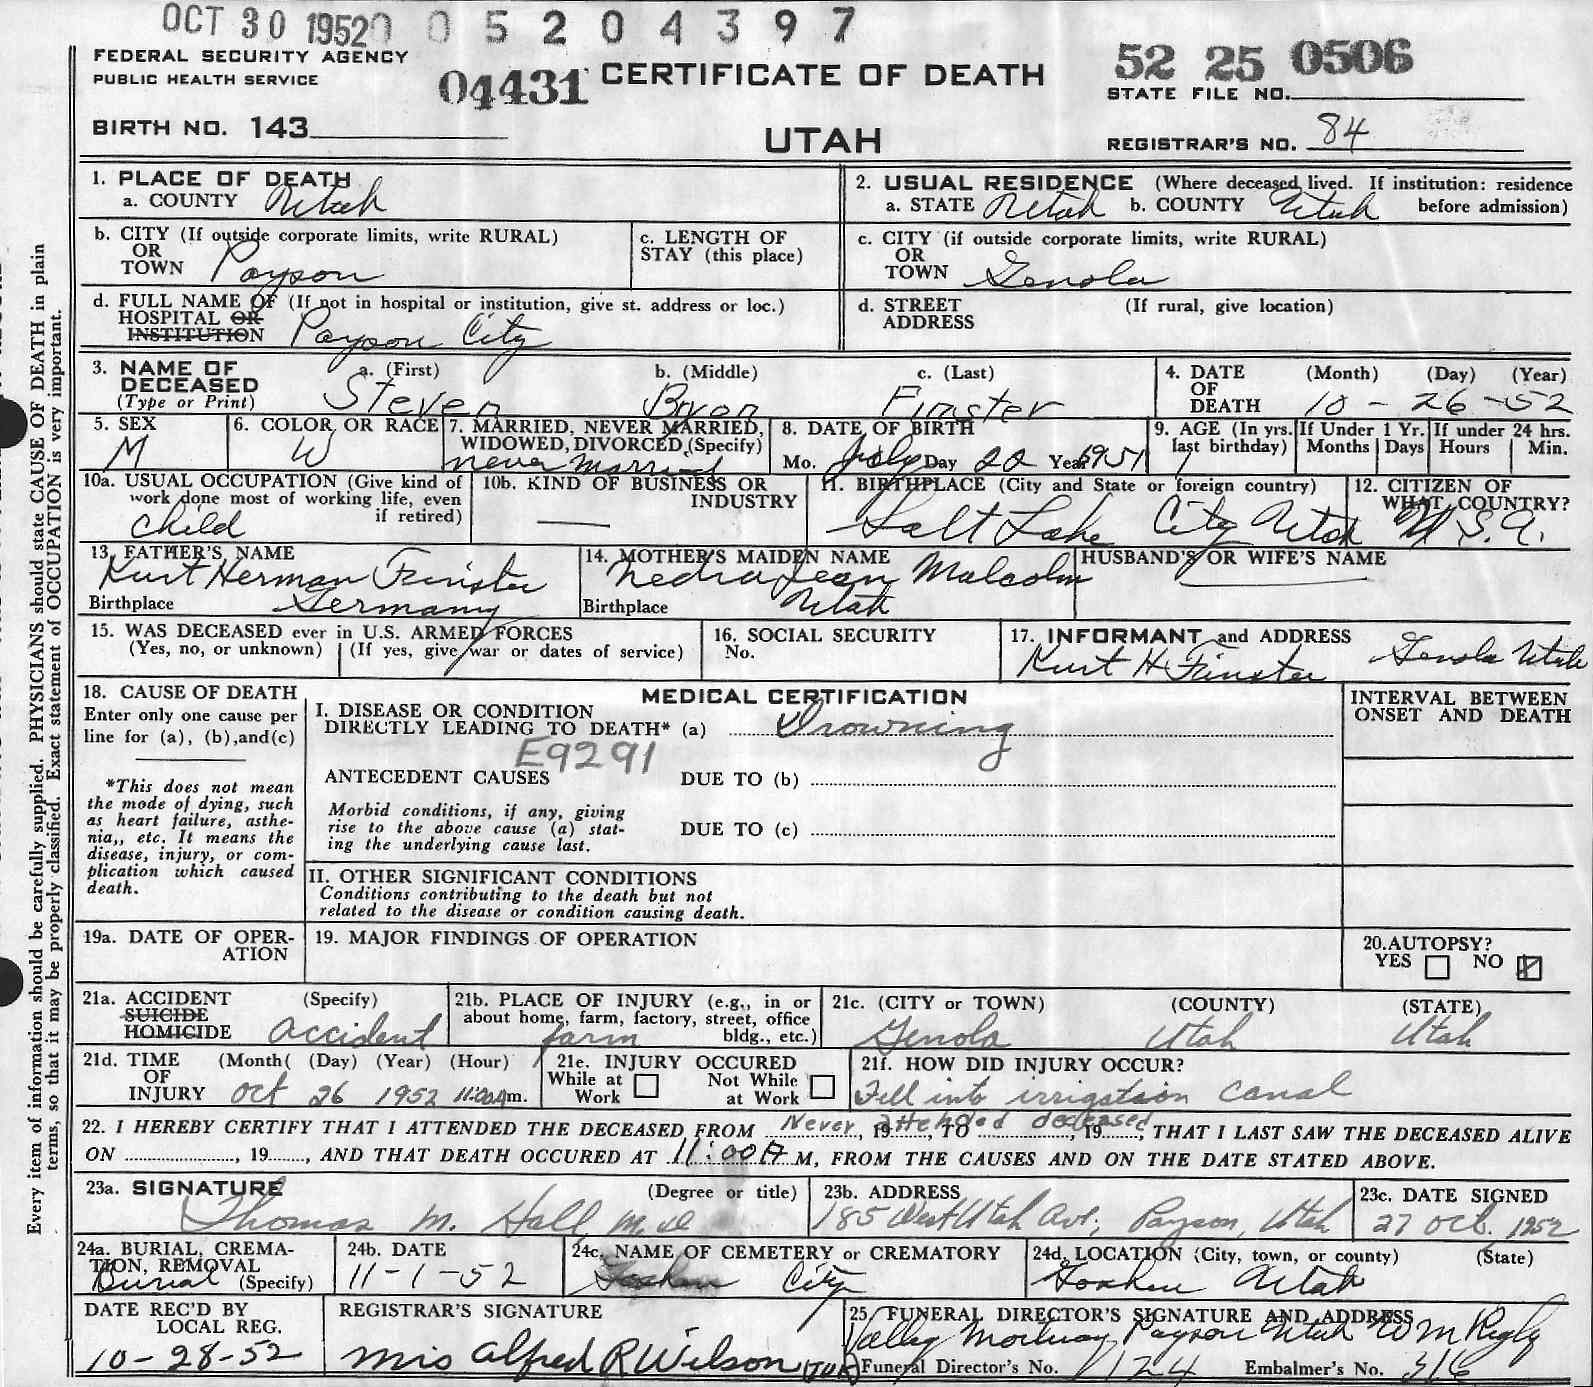 OCT 30 1952 0 0 5 2 0 4 3 9 7
FEDERAL SECURITY AGENCY
PUBLIC HEALTH SERVICE
04431 CERTIFICATE OF DEATH
52 25 0506
STATE FILE NO.
BIRTH NO. 143
UTAH
REGISTRAR'S NO. 84
Every item of information should be carefully supplied. PHYSICIANS should state CAUSE OF DEATH in plain
terms, so that it may be properly classified. Exact statement of OCCUPATION is very important.
1. PLACE OF DEATH
a. COUNTY Utah
2. USUAL RESIDENCE (Where deceased lived. If institution: residence
a. STATE Utah b. COUNTY Utah before admission)
b. CITY (If outside corporate limits, write RURAL)
OR
TOWN Payson
c. LENGTH OF
STAY (this place)
c. CITY (if outside corporate limits, write RURAL)
OR
TOWN Genola
d. FULL NAME OF (If not in hospital or institution, give st. address or loc.)
HOSPITAL OR
INSTITUTION Payson City
d. STREET (If rural, give location)
ADDRESS
3. NAME OF DECEASED
(Type or Print)
a. (First) b. (Middle) c. (Last)
Steven Bryon Finster
4. DATE OF DEATH (Month) (Day) (Year)
10-26-52
5. SEX
M
6. COLOR OR RACE
W
7. MARRIED, NEVER MARRIED,
WIDOWED, DIVORCED (Specify)
never married
8. DATE OF BIRTH
Mo. July Day 22 Year 1951
9. AGE (In yrs. last birthday)
1
If Under 1 Yr.
Months Days
If under 24 hrs.
Hours Min.
10a. USUAL OCCUPATION (Give kind of
work done most of working life, even
if retired)
child
10b. KIND OF BUSINESS OR
INDUSTRY
11. BIRTHPLACE (City and State or foreign country)
Salt Lake City Utah
12. CITIZEN OF
WHAT COUNTRY?
U.S.A.
13. FATHER'S NAME
Kurt Herman Finster
Birthplace Germany
14. MOTHER'S MAIDEN NAME
Nedra Jean Malcolm
Birthplace Utah
HUSBAND'S OR WIFE'S NAME
15. WAS DECEASED ever in U.S. ARMED FORCES
(Yes, no, or unknown) (If yes, give war or dates of service)
16. SOCIAL SECURITY
No.
17. INFORMANT and ADDRESS
Kurt H Finster Genola Utah
18. CAUSE OF DEATH
Enter only one cause per
line for (a), (b),and(c)
*This does not mean
the mode of dying, such
as heart failure, asthe-
nia,, etc. It means the
disease, injury, or com-
plication which caused
death.
MEDICAL CERTIFICATION
I. DISEASE OR CONDITION
DIRECTLY LEADING TO DEATH* (a) Drowning
E9291
ANTECEDENT CAUSES DUE TO (b)
Morbid conditions, if any, giving
rise to the above cause (a) stat-
ing the underlying cause last.
DUE TO (c)
II. OTHER SIGNIFICANT CONDITIONS
Conditions contributing to the death but not
related to the disease or condition causing death.
INTERVAL BETWEEN
ONSET AND DEATH
19a. DATE OF OPER-
ATION
19. MAJOR FINDINGS OF OPERATION
20.AUTOPSY?
YES NO
21a. ACCIDENT (Specify)
SUICIDE
HOMICIDE Accident
21b. PLACE OF INJURY (e.g., in or
about home, farm, factory, street, office
bldg., etc.)
farm
21c. (CITY or TOWN) (COUNTY) (STATE)
Genola Utah Utah
21d. TIME (Month( (Day) (Year) (Hour)
OF
INJURY Oct 26 1952 11:00Am.
21e. INJURY OCCURED
While at Work Not While at Work
21f. HOW DID INJURY OCCUR?
Fell into irrigation canal
22. I HEREBY CERTIFY THAT I ATTENDED THE DECEASED FROM Never attended deceased, 19......, TO ............, 19......, THAT I LAST SAW THE DECEASED ALIVE
ON ............, 19......, AND THAT DEATH OCCURED AT 11:00A M, FROM THE CAUSES AND ON THE DATE STATED ABOVE.
23a. SIGNATURE (Degree or title)
Thomas M. Hall, M.D
23b. ADDRESS
185 West Utah Ave, Payson, Utah
23c. DATE SIGNED
27 Oct. 1952
24a. BURIAL, CREMA-
TION, REMOVAL
Burial (Specify)
24b. DATE
11-1-52
24c. NAME OF CEMETERY or CREMATORY
Goshen City
24d. LOCATION (City, town, or county) (State)
Goshen Utah
DATE REC'D BY
LOCAL REG.
10-28-52
REGISTRAR'S SIGNATURE
Mrs Alfred R Wilson
25. FUNERAL DIRECTOR'S SIGNATURE AND ADDRESS
Valley Mortuary Payson Utah Wm Rigby
Funeral Director's No. 124 Embalmer's No. 316